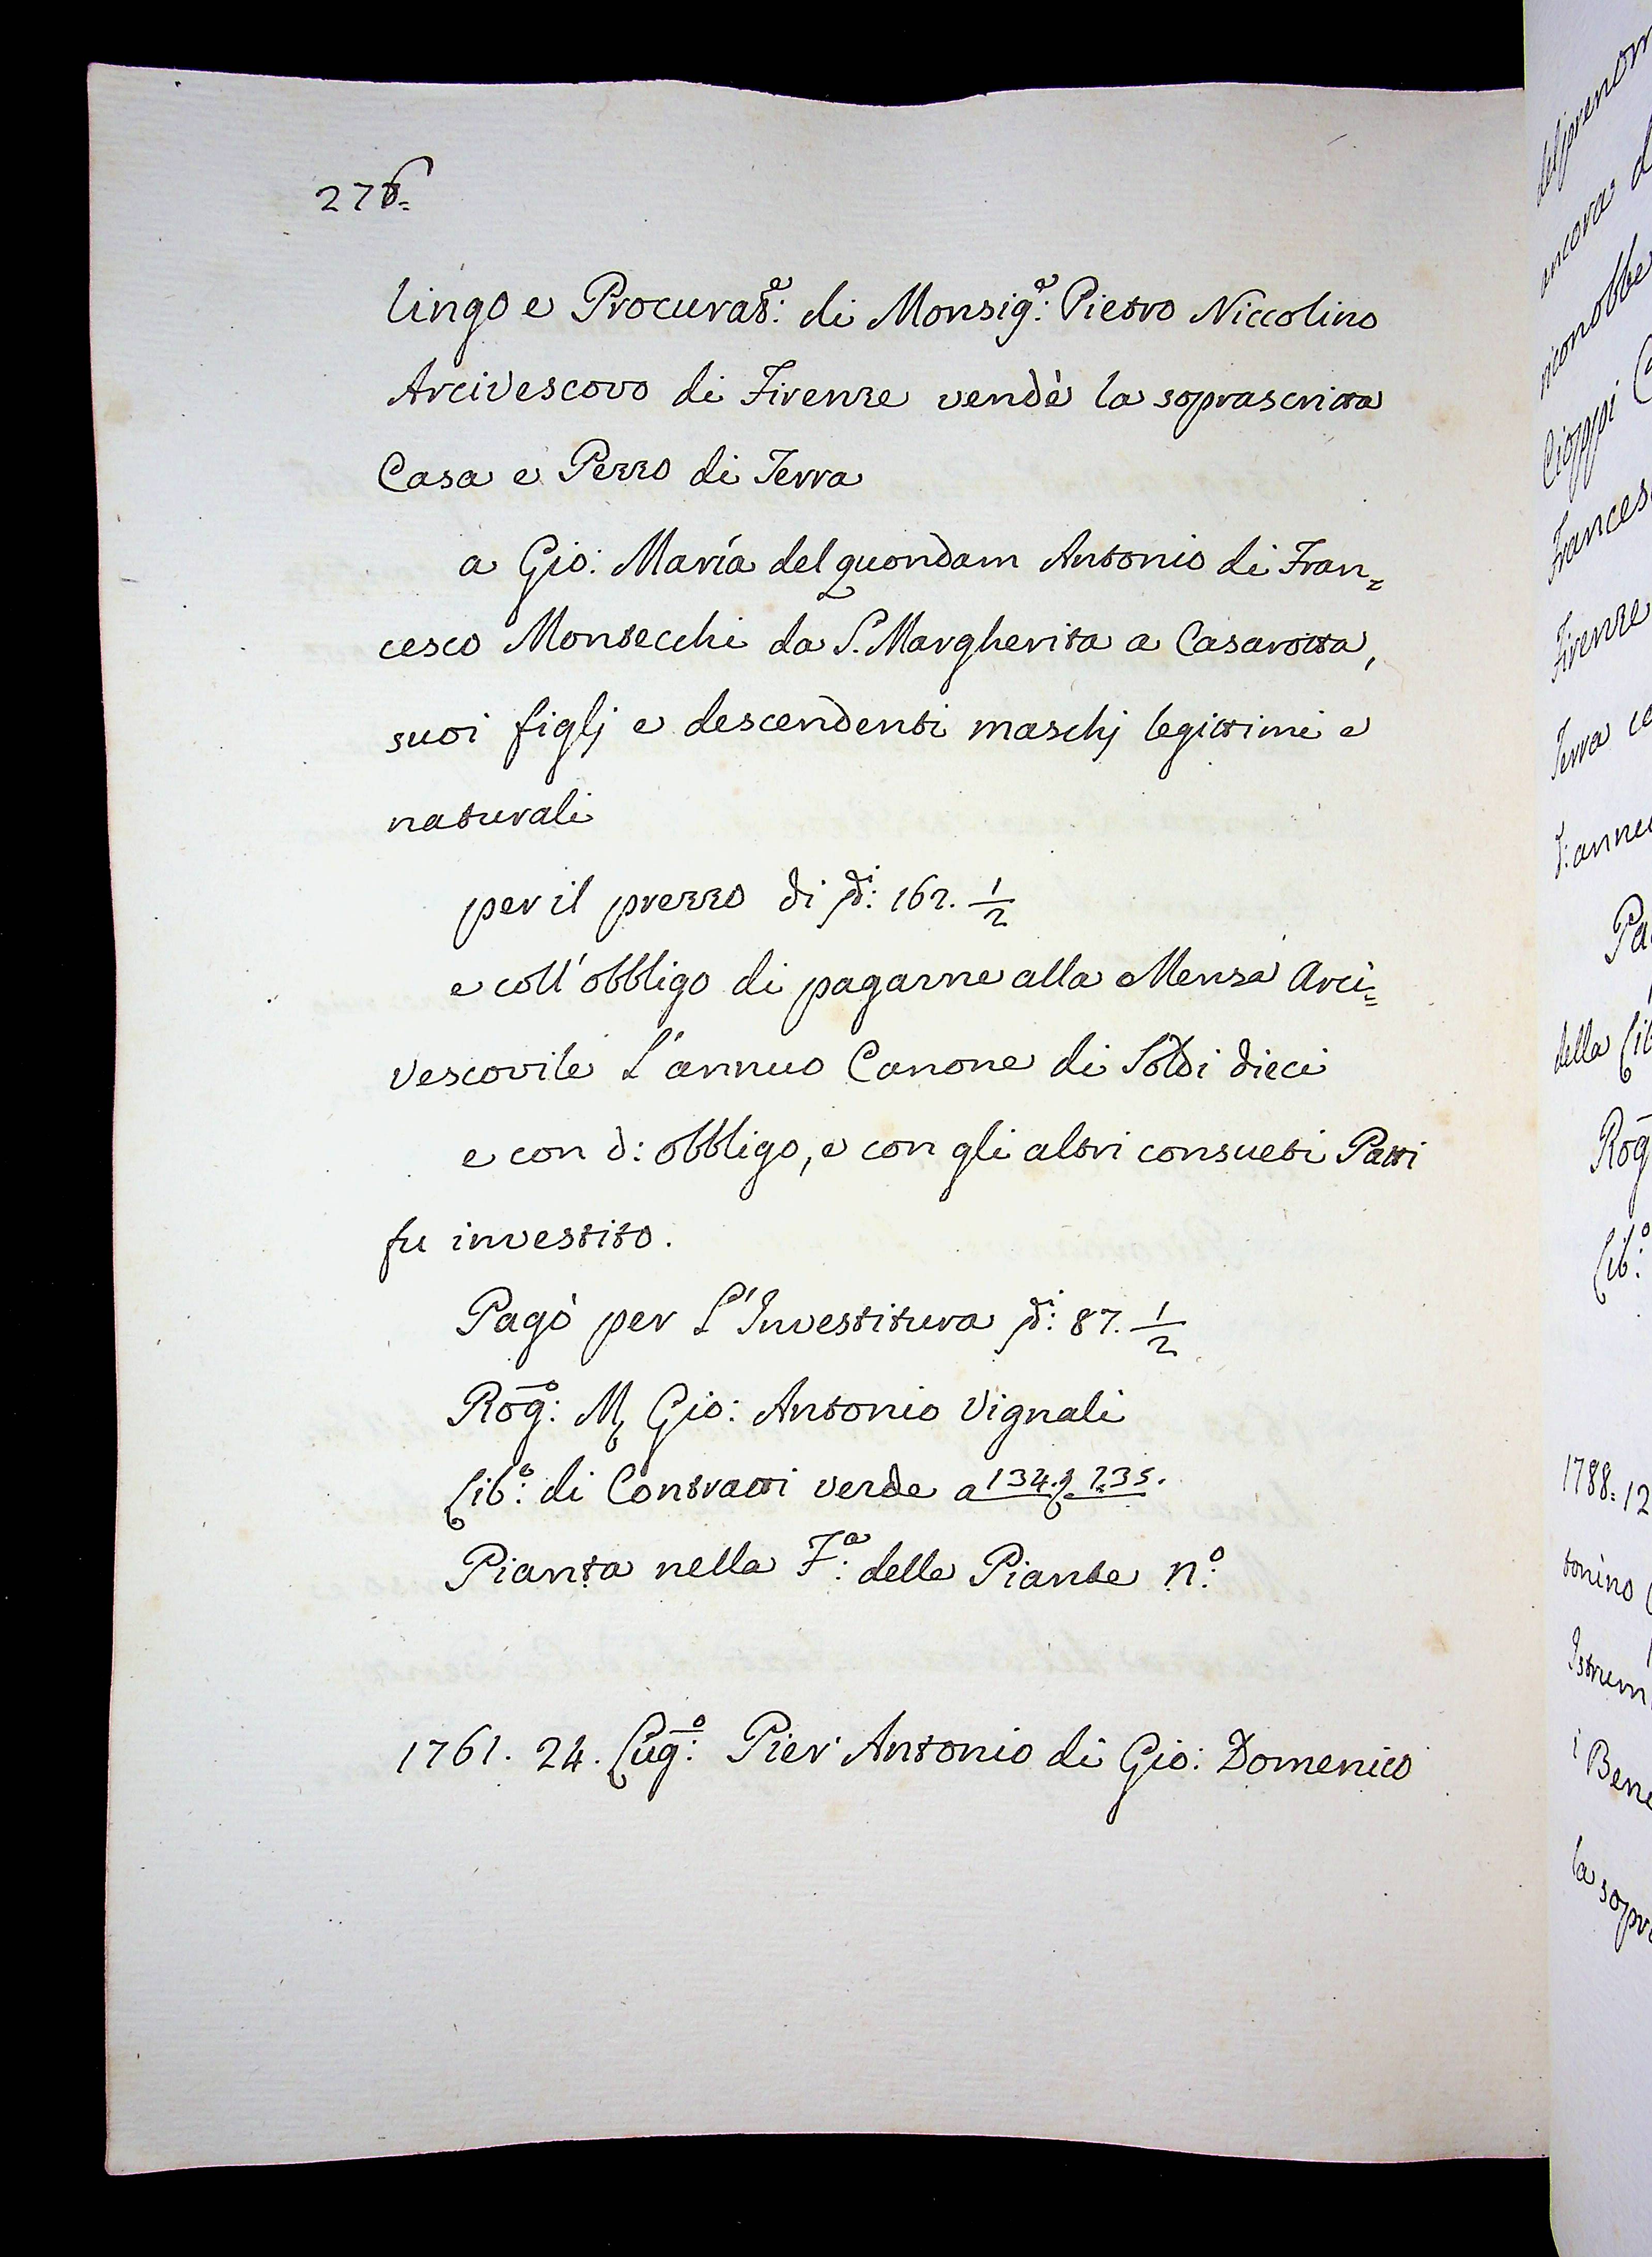 276=
lingo e Procurat:e di Monsig:e Pietro Niccolino
Arcivescovo di Firenze vendè la soprascritta
Casa e Pezzo di Terra
a Gio: Maria del quondam Antonio di Fran=
cesco Montecchi da S. Margherita a Casarotta,
suoi figlj e descendenti maschj legittimi e
naturali
per il prezzo di 162. 1/2
e coll'obbligo di pagarne alla Mensa Arci=
vescovile L'annuo Canone di Soldi dieci
e con d: obbligo, e con gli altri consueti Patti
fu investito.
Pagò per L'Investitura 87. 1/2
Rog:o M Gio: Antonio Vignali
Lib:o di Contratti verde a 134. e 235.
Pianta nella F:a delle Piante n:o
1761. 24. Lug:o Pier Antonio di Gio: Domenico
ancora
riconobbe
Cioppi
Frances
Firenze
Terra
della Lib
Rog
Lib:o
1788. 12
tonino
Istrum
i Bene
la sopr